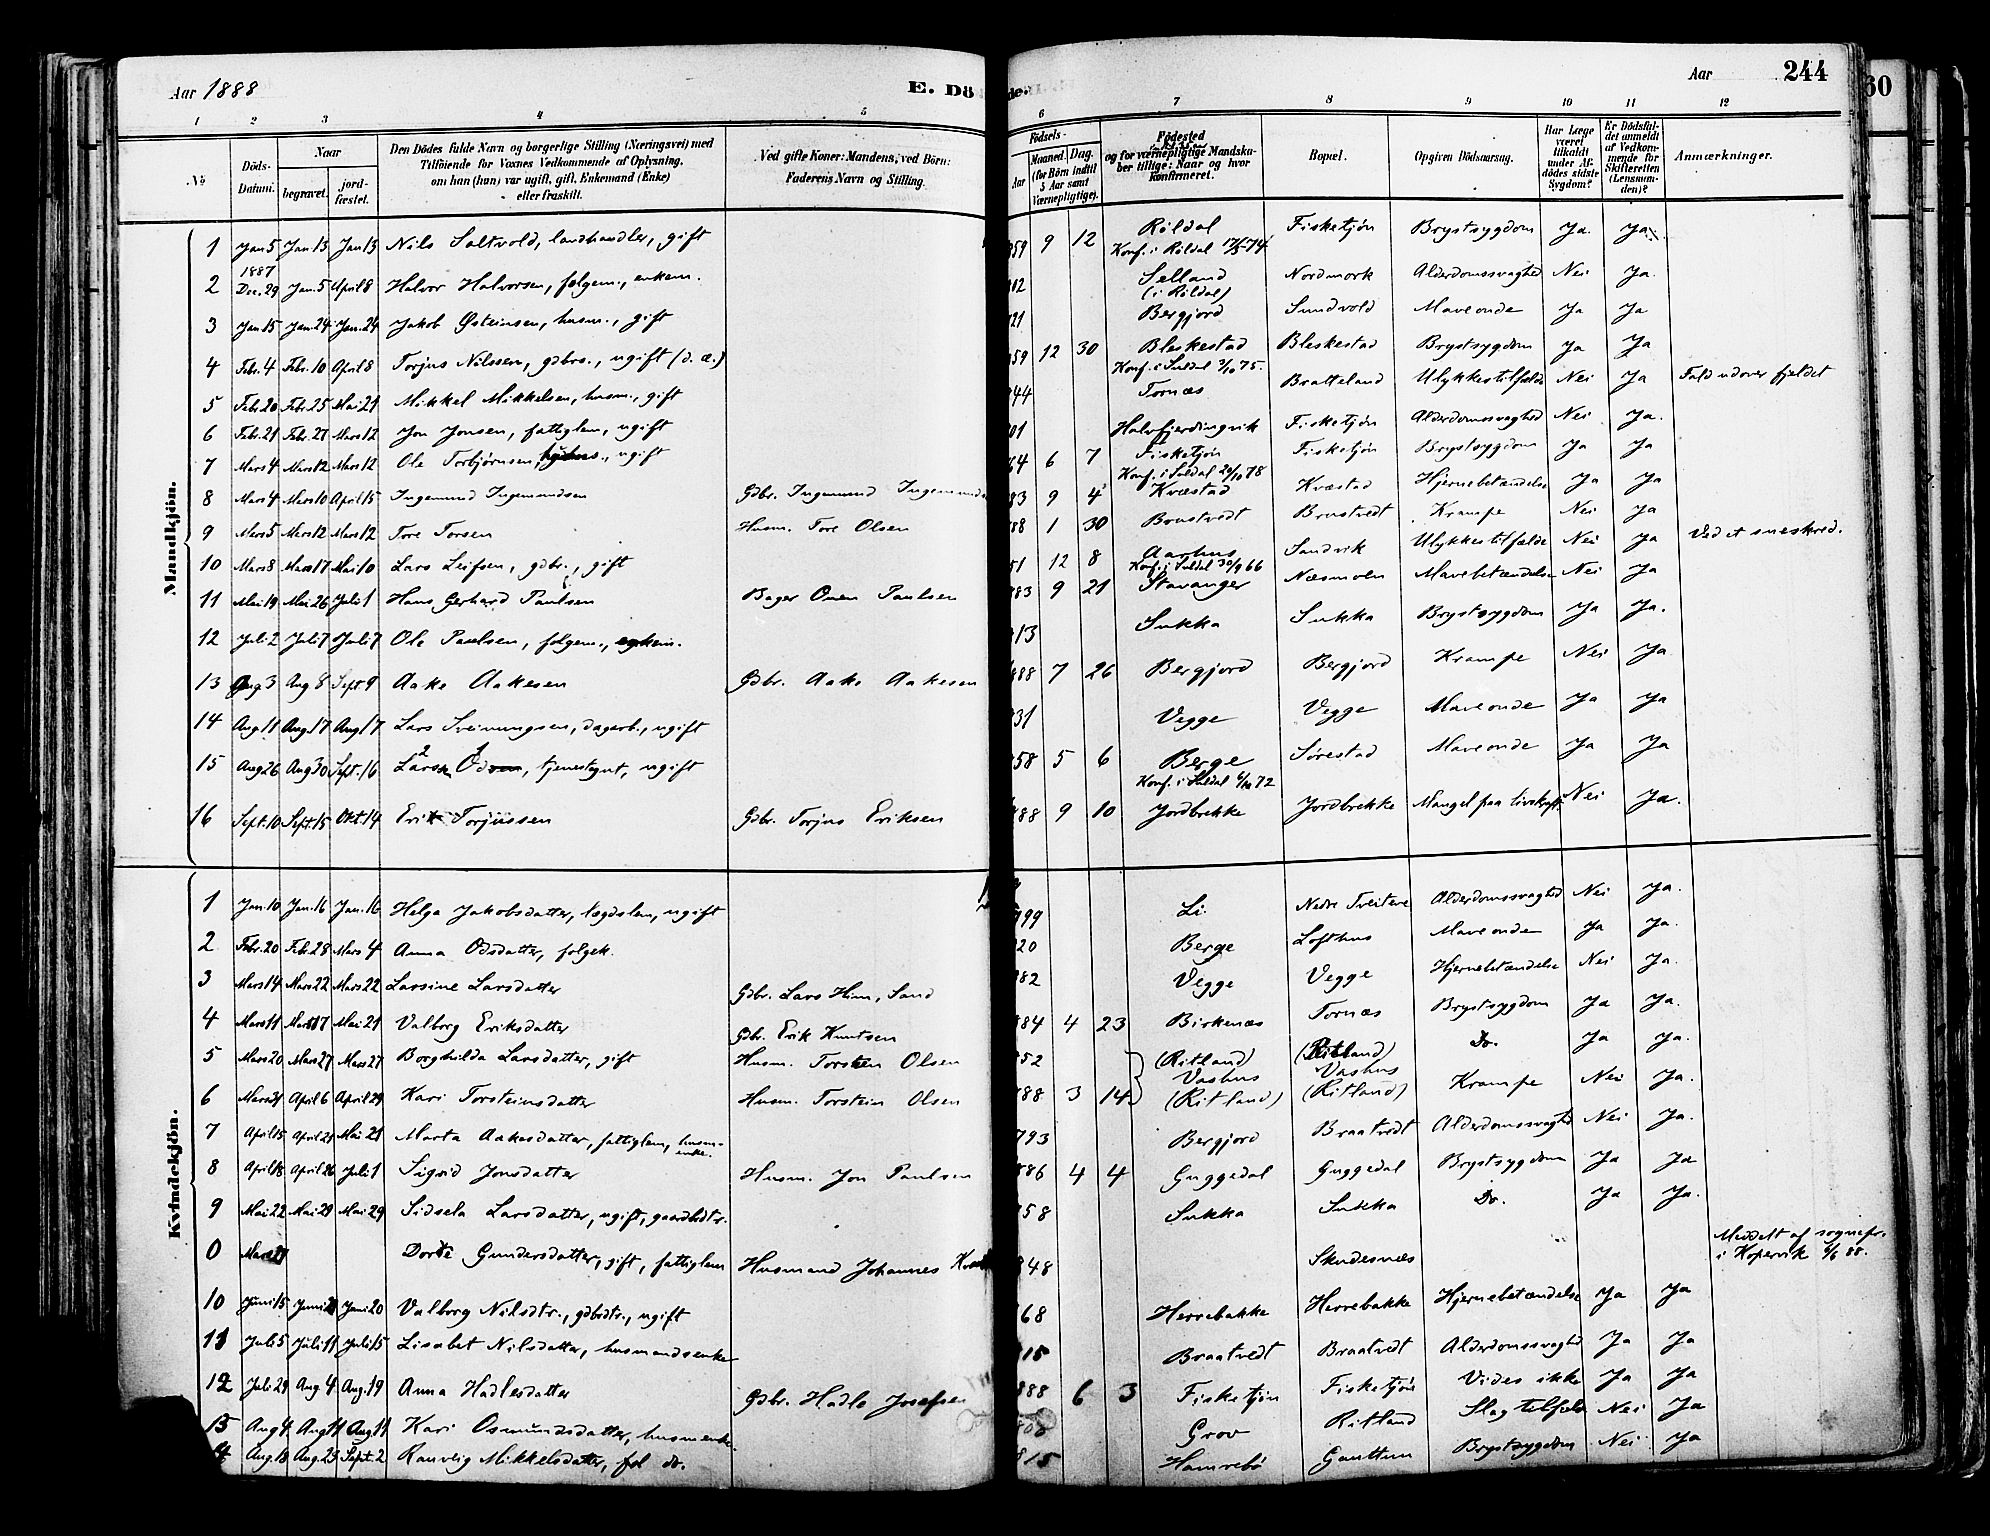 Aar 1888
E. Dö
de.
Aar
244
60
1 2 3 4 5 6 7 8 9 10 11 12
No
Döds-Datum.
Naar
begravet.
jord-fæstet.
Den Dödes fulde Navn og borgerlige Stilling (Næringsvei) med
Tilföiende for Voxnes Vedkommende af Oplysning,
om han (hun) var ugift, gift, Enkemand (Enke)
eller fraskilt.
Ved gifte Koner: Mandens, ved Börn:
Faderens Navn og Stilling.
Födsels-
Aar
Maaned. Dag.
(for Börn indtil
5 Aar samt
Værnepligtige).
Födested
og for værnepligtige Mandska-
ber tillige: Naar og hvor
konfirmeret.
Bopæl.
Opgiven Dödsaarsag.
Har Læge
været
tilkaldt
under Af-
dödes sidste
Sygdom?
Er Dödsfal-
det anmeldt
af Vedkom-
mende for
Skifteretten
(Lensman-
den)?
Anmærkninger.
Mandkjön.
1 Jan 5 Jan 13 Jan 13 Nils Saltvold, landhandler, gift 859 9 12 Röldal Fisketjön Brystsygdom Ja Ja
Konf. i Röldal 74
1887
2 Dec. 29 Jan. 5 April 8 Halvor Halvorsen, folgem., enkem. 12 Selland (i Röldal) Nordmork Alderdomssvaghed Nei Ja.
3 Jan 15 Jan 24 Jan. 24 Jakob Østeinsen, husm., gift 21 Bergjord Sundvold Maveonde Ja Ja
4 Febr. 4 Febr. 10 April 8 Torjus Nilssen, gdbrs., ugift (d. æ.) 859 12 30 Bleskestad Bleskestad Brystsygdom Ja Ja
Konf. i Suldal 3/10 75.
5 Febr 20 Febr. 25 Mai 21 Mikkel Mikkelsen, husm., gift 844 Tornæs Bratteland Ulykkestilfælde Nei Ja Fald udover fjeldet
6 Febr. 21 Febr. 27 Mars 12 Jon Jonsen, fattiglem, ugift 01 Halvfjerdingvik Fisketjön Alderdomssvaghed Nei Ja.
7 Mars 4 Mars 12 Mars 12 Ole Torbjörnsen, ugift 64 6 7 Fisketjön Fisketjön Brystsygdom Ja Ja
Konf. i Suldal 20/10 78
8 Mars 4 Mars 10 April 15 Ingemund Ingemundsen Gdbr. Ingemund Ingemunds 83 9 4 Kvæstad Kvæstad Hjernebetændelse Ja Ja
9 Mars 5 Mars 12 Mars 12 Tore Torsen Husm. Tore Olsen 88 1 30 Brustvedt Brustvedt Krampe Nei Ja
10 Mars 8 Mars 17 Mai 10 Lars Leifsen, gdbr., gift 51 12 8 Aarhus Sandvik Ulykkestilfælde Nei Ja Ved et sneskred.
Konf. i Suldal 30/9 66
11 Mai 19 Mai 26 Juli 1 Hans Gerhard Paulsen Bager Paulsen 883 9 21 Stavanger Næsmoen Mavebetændelse Nei Ja
12 Juli 2 Juli 7 Juli 7 Ole Paulsen, folgem., enkem. 813 Sukka Sukka Brystsygdom Ja Ja.
13 Aug 3 Aug 8 Sept 9 Aake Aakesen Gdbr. Aake Aakesen 888 7 26 Bergjord Bergjord Krampe Nei Ja
14 Aug 11 Aug 17 Aug 17 Lars Sveinungsen, dagarb., ugift 31 Vegge Vegge Maveonde Ja Ja
15 Aug 26 Aug 30 Sept. 16 Lars Od, tjenestegut, ugift 858 5 6 Berge Sørestad Maveonde Ja Ja
Konf. i Suldal 72
16 Sept. 10 Sept. 15 Okt. 14 Erik Torjussen Gdbr. Torjus Eriksen 888 9 10 Jordbrekke Jordbrekke Mangel paa livskraft Nei Ja.
Kvindekjön.
1 Jan. 10 Jan. 16 Jan. 16 Helga Jakobsdatter, lægdslem, ugift 799 Li Nedre Tveiteve Alderdomssvaghed Nei Ja.
2 Febr. 20 Febr. 28 Mars 4 Anna Odsdatter, folgek. 820 Berge Lofthus Maveonde Ja Ja.
3 Mars 14 Mars 22 Mars 22 Larsine Larsdatter Gdbr. Lars Hiim, Sand 882 Vegge Vegge Hjernebetændelse Nei Ja.
4 Mars 11 Mars 17 Mai 21 Valborg Eriksdatter Gdbr. Erik Knutsen 884 4 23 Birkenæs Tornæs Brystsygdom Ja Ja.
5 Mars 20 Mars 27 Mars 27 Borghilda Larsdatter, gift Husm. Torstein Olsen 852 (Ritland) Vashus (Ritland) Vashus Do. Ja Ja.
6 Mars 31 April 6 April 29 Kari Torsteinsdatter Husm. Torstein Olsen 888 3 14 (Ritland) (Ritland) Krampe Nei Ja.
7 April 15 April 21 Mai 21 Marta Aakesdatter, fattiglem, husm-enke. 793 Bergjord Braatvedt Alderdomssvaghed Nei Ja.
8 April 18 April 26 Juli 1 Sigrid Jonsdatter Husm. Jon Paulsen 886 4 4 Guggedal Guggedal Brystsygdom Ja Ja
9 Mai 22 Mai 29 Mai 29 Sidsela Larsdatter, ugift, gaardbdtr. 858 Sukka Sukka Do. Ja Ja.
0 Mars Dorte Gundersdatter, gift, fattiglem Husmand Johannes 848 Skudesnæs Meddelt af sognepr. i Kopervik 88.
10 Juni 15 Juni 20 Juni 20 Valborg Nilsdtr., gdbrdtr., ugift 68 Herrebakke Herrebakke Hjernebetændelse Ja Ja
11 Juli 5 Juli 11 Juli 15 Lisabet Nilsdatter, husmandsenke 815 Braatvedt Braatvedt Alderdomssvaghed Ja Ja
12 Juli 29 Aug. 4 Aug. 19 Anna Hadlesdatter Gdbr. Hadle Josefsen 888 6 3 Fisketjön Fisketjön Vides ikke Ja Ja
13 Aug 4 Aug 11 Aug 11 Kari Osmundsdatter, husmenke. 808 Grov Ritland Slagtilfælde Nei Ja
14 Aug. 18 Aug. 23 Sept. 2 Ranveig Mikkelsdatter, fol do. 815 Hamrebö Gauttun Brystsygdom Nei Ja